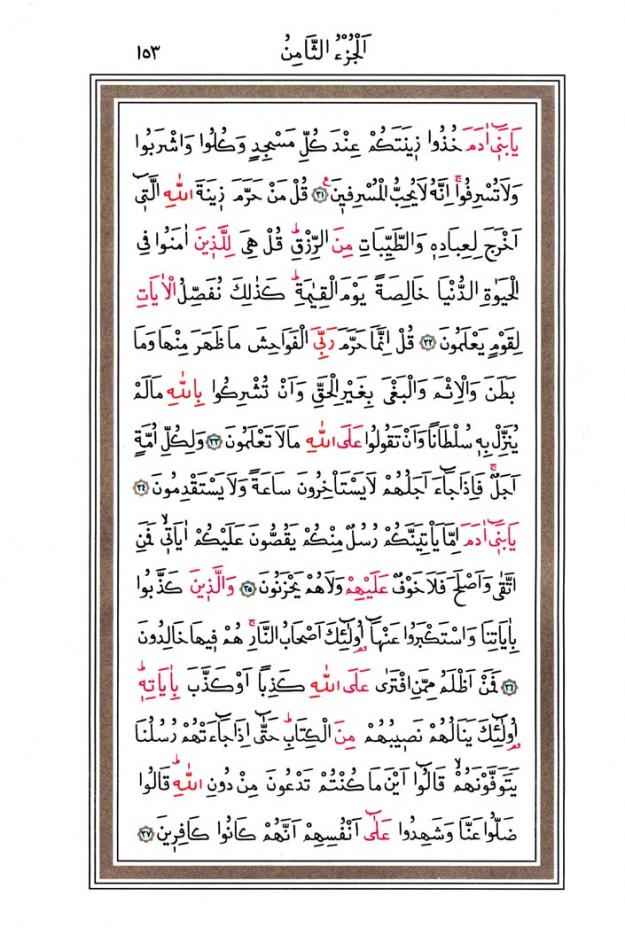 اَلْجُزْءُ الثَّامِنُ ١٥٣
يَابَنٓي اٰدَمَ خُذُوا زٖينَتَكُمْ عِنْدَ كُلِّ مَسْجِدٍ وَكُلُوا وَاشْرَبُوا
وَلَا تُسْرِفُوا اِنَّهُ لَا يُحِبُّ الْمُسْرِفٖينَ ﴿٣١﴾ قُلْ مَنْ حَرَّمَ زٖينَةَ اللّٰهِ الَّتٖٓي
اَخْرَجَ لِعِبَادِهٖ وَالطَّيِّبَاتِ مِنَ الرِّزْقِ قُلْ هِيَ لِلَّذٖينَ اٰمَنُوا فِي
الْحَيٰوةِ الدُّنْيَا خَالِصَةً يَوْمَ الْقِيٰمَةِ كَذٰلِكَ نُفَصِّلُ الْاٰيَاتِ
لِقَوْمٍ يَعْلَمُونَ ﴿٣٢﴾ قُلْ اِنَّمَا حَرَّمَ رَبِّيَ الْفَوَاحِشَ مَا ظَهَرَ مِنْهَا وَمَا
بَطَنَ وَالْاِثْمَ وَالْبَغْيَ بِغَيْرِ الْحَقِّ وَاَنْ تُشْرِكُوا بِاللّٰهِ مَا لَمْ
يُنَزِّلْ بِهٖ سُلْطَانًا وَاَنْ تَقُولُوا عَلَى اللّٰهِ مَا لَا تَعْلَمُونَ ﴿٣٣﴾ وَلِكُلِّ اُمَّةٍ
اَجَلٌ فَاِذَا جَٓاءَ اَجَلُهُمْ لَا يَسْتَأْخِرُونَ سَاعَةً وَلَا يَسْتَقْدِمُونَ ﴿٣٤﴾
يَابَنٓي اٰدَمَ اِمَّا يَأْتِيَنَّكُمْ رُسُلٌ مِنْكُمْ يَقُصُّونَ عَلَيْكُمْ اٰيَاتٖي فَمَنِ
اتَّقٰى وَاَصْلَحَ فَلَا خَوْفٌ عَلَيْهِمْ وَلَا هُمْ يَحْزَنُونَ ﴿٣٥﴾ وَالَّذٖينَ كَذَّبُوا
بِاٰيَاتِنَا وَاسْتَكْبَرُوا عَنْهَٓا اُولٰٓئِكَ اَصْحَابُ النَّارِ هُمْ فٖيهَا خَالِدُونَ
﴿٣٦﴾ فَمَنْ اَظْلَمُ مِمَّنِ افْتَرٰى عَلَى اللّٰهِ كَذِبًا اَوْ كَذَّبَ بِاٰيَاتِهٖ
اُولٰٓئِكَ يَنَالُهُمْ نَصٖيبُهُمْ مِنَ الْكِتَابِ حَتّٰٓى اِذَا جَٓاءَتْهُمْ رُسُلُنَا
يَتَوَفَّوْنَهُمْ قَالُٓوا اَيْنَ مَا كُنْتُمْ تَدْعُونَ مِنْ دُونِ اللّٰهِ قَالُوا
ضَلُّوا عَنَّا وَشَهِدُوا عَلٰٓى اَنْفُسِهِمْ اَنَّهُمْ كَانُوا كَافِرٖينَ ﴿٣٧﴾